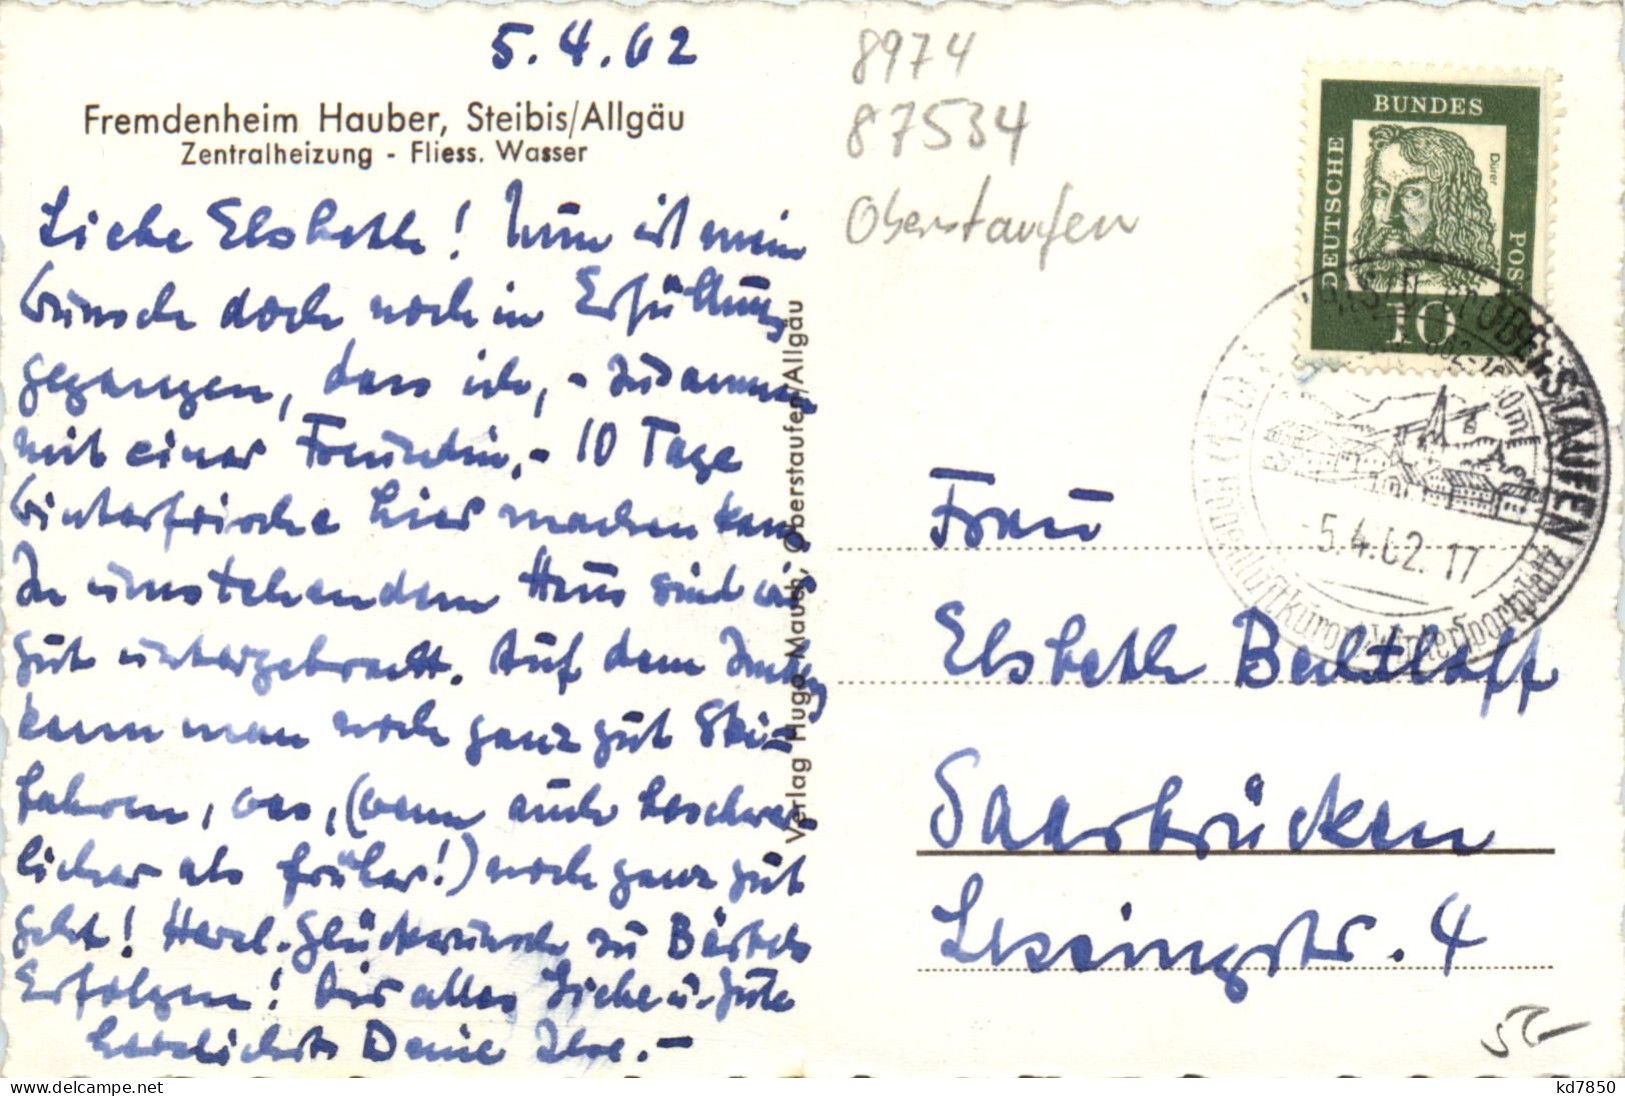 5.4.62
Fremdenheim Hauber, Steibis/Allgäu
Zentralheizung - Fliess. Wasser
Liebe Elsbeth! Nun ist mein
Wunsch doch noch in Erfüllung
gegangen, dass ich, - zusammen
mit einer Freundin, - 10 Tage
Winterfrische hier machen kann.
In umstehendem Haus sind wir
gut untergebracht. Auf dem Imberg
kann man noch ganz gut Ski-
fahren, was, (wenn auch beschwer-
licher als früher!) noch ganz gut
geht! Herzl. Glückwunsch zu Bärbels
Erfolgen! Dir alles Liebe u. Gute
herzlichst Deine Ilse. -
Verlag Hugo Mauch, Oberstaufen/Allgäu
8974
87534
Oberstaufen
DEUTSCHE BUNDESPOST
Dürer
10
OBERSTAUFEN
-5.4.62.17
Höhenluftkurort Wintersportplatz
Frau
Elsbeth
Saarbrücken
Lessingstr. 4
kd7850